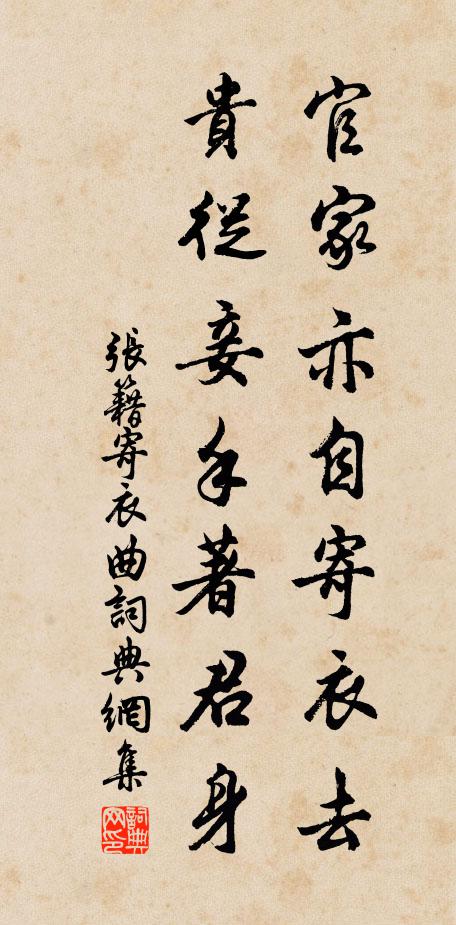 官家亦自寄衣去
貴從妾手著君身
張籍寄衣曲詞典網集
詞典网印